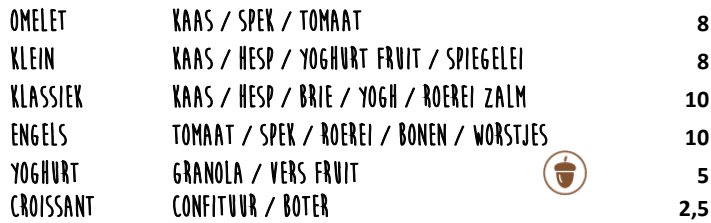 OMELET KAAS / SPEK / TOMAAT 8
KLEIN KAAS / HESP / YOGHURT FRUIT / SPIEGELEI 8
KLASSIEK KAAS / HESP / BRIE / YOGH / ROEREI ZALM 10
ENGELS TOMAAT / SPEK / ROEREI / BONEN / WORSTJES 10
YOGHURT GRANOLA / VERS FRUIT 5
CROISSANT CONFITUUR / BOTER 2,5